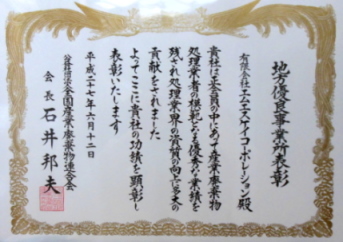 地方優良事業所表彰
有限会社エムエスケイコーポレーション殿
貴社は正会員の中にあって産業廃棄物
処理業者の模範となる優秀な業績を
残され処理業界の資質の向上に多大の
貢献をされました
よってここに貴社の功績を顕彰し
表彰いたします
平成二十七年六月十二日
公益社団法人全国産業廃棄物連合会
会長 石井邦夫